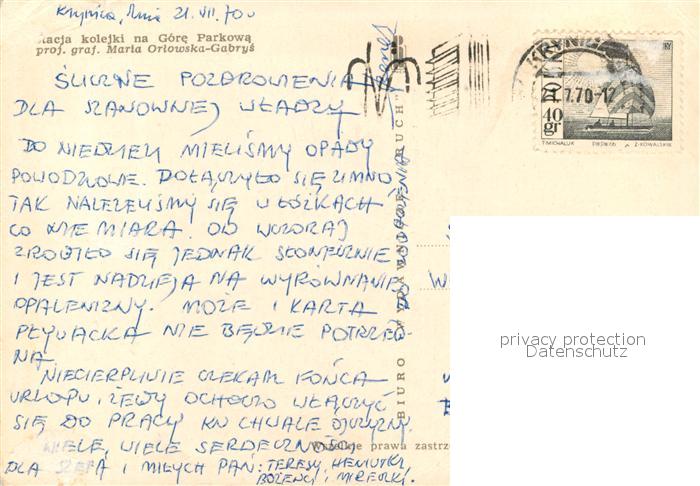 Krynica, dnia 21.VII.70 r.
stacja kolejki na Górę Parkową
proj. graf. Maria Orłowska-Gabryś
ŚLICZNE POZDROWIENIA
DLA SZANOWNEJ WŁADZY
DO NIEDZIELI MIELIŚMY OPADY
POWODZIOWE. DOŁĄCZYŁO SIĘ ZIMNO,
TAK NALEŻELIŚMY SIĘ W ŁÓŻKACH
CO NIEMIARA. OD WCZORAJ
ZROBIŁO SIĘ JEDNAK SŁONECZNIE
I JEST NADZIEJA NA WYRÓWNANIE
OPALENIZNY. MOŻE I KARTA
PŁYWACKA NIE BĘDZIE POTRZEB-
NA.
NIECIERPLIWIE CZEKAM KOŃCA
URLOPU, ŻEBY OCHOCZO WŁĄCZYĆ
SIĘ DO PRACY KU CHWALE OJCZYZNY.
WIELE, WIELE SERDECZNOŚCI
DLA SZEFA I MIŁYCH PAŃ: TERESY, HENIUTKI,
BOŻENCI, MIRELKI.
DO WIDZENIA
BIURO WYDAWNICZE „RUCH"
Wszelkie prawa zastrz
KRYNICA
7.70-12
40
gr
T. MICHALUK
Z. KOWALSKI
privacy protection
Datenschutz